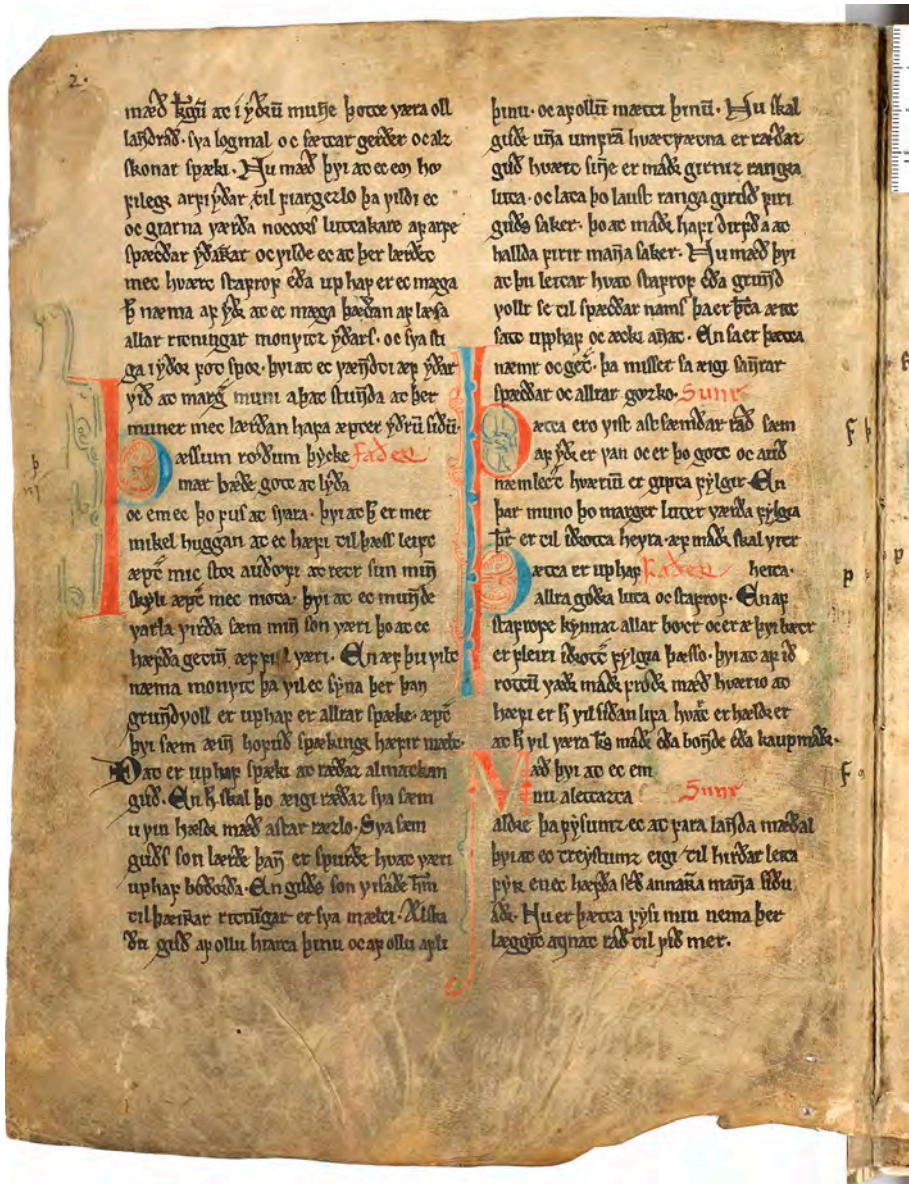 2.
mæð kgū at i yðrū muñe þotte væra oll
lañdráð. sva logmal oc sættar gerðer oc alz
skonar spæki. Nu mæð þvi at ec em ho
fileg arfi yðar til fiargezlo þa vildi ec
oc giarna værða noccors luttakare af arfe
spæcðar yðarrar oc vilde ec at þer lærðet
mec hvært stafrof eða uphaf er ec mæga
næma af yðr at ec mæga þæðan af læsa
allar ritningar monvitz yðars. oc sva sti
ga i yðor fot spor. þvi at ec vændti æf yðar
við at marg muni a þat stunda at þer
muner mec lærðan hafa æpter yðrū siðū.
Þæssum rorðum þycke faðer
mær bæðe gott at lyða
oc em ec þo fus at svara. þvi at þ er mer
mikel huggan at ec hæfi til þæss leift
æpt mic stor auðǫfi at rett sun miñ
skyli æpt mec niota. þvi at ec munde
varla virða sæm miñ son væri þo at ec
hæfða getiñ æf fifl væri. En æf þu vilt
næma monvit þa vil ec syna þer þañ
grunðvoll er uphaf er allrar spæke. æpt
þvi sæm æiñ hofuð spækingr hæfir mælt.
Þat er uphaf spæki at ræðaz almatkan
guð. En h skal þo æigi ræðaz sva sæm
uvin hældr mæð astar ræzlo. Sva sæm
guðs son lærðe þañ er spurðe hvat væri
uphaf boðorða. En guðs son visaðe hm
til þæirar ritningar er sva mælti. Ælska
ðu guð af ollu hiarta þinu oc af ollu afli
þinu. oc af ollū mætti þinū. Nu skal
guðe uña umfrā hvætvætna er ræðaz
guð hvært siñe er maðr girniz rangra
luta. oc lata þo laust ranga girnð firi
guðs saker. þo at maðr hafi dirfða at
hallda firir maña saker. Nu mæð þvi
at þu leitar hvat stafrof eða grunð
vollr se til spæcðar nams þa er þta ætt
satt upphaf oc æcki añat. En sa er þætta
næmr oc get. þa misser sa æigi sañrar
spæcðar oc allrar gozko. Sunr
Þætta ero vist astsæmðar ráð sæm
af yðr er van oc er þo gott oc auð
næmlect hværiū er gipta fylgir. En
þar muno þo marger luter værða fylgia
þr er til iðrotta heyra. æf maðr skal vitr
Þætta er uphaf Faðer heita.
allra goðra luta oc stafrof. En af
stafrofe kynnaz allar bocr oc er æ þvi bætr
er fleiri iðrott fylgia þæsso. þvi at af iþ
rottū værðr maðr froðr mæð hværio at
hæfi er h vil siðan lifa hvart er hældr er
at h vil væra ks maðr eða bonðe eða kaupmaðr.
Mæð þvi at ec em
nu alettazta Sunr
alðre þa fysumz ec at fara lañða mæðal
þvi at ec treystumz eigi til hirðar leita
fyrr en ec hæfða seð annarra maña siðu
áðr. Nu er þætta fysi min nema þer
læggit añat ráð til við mer.